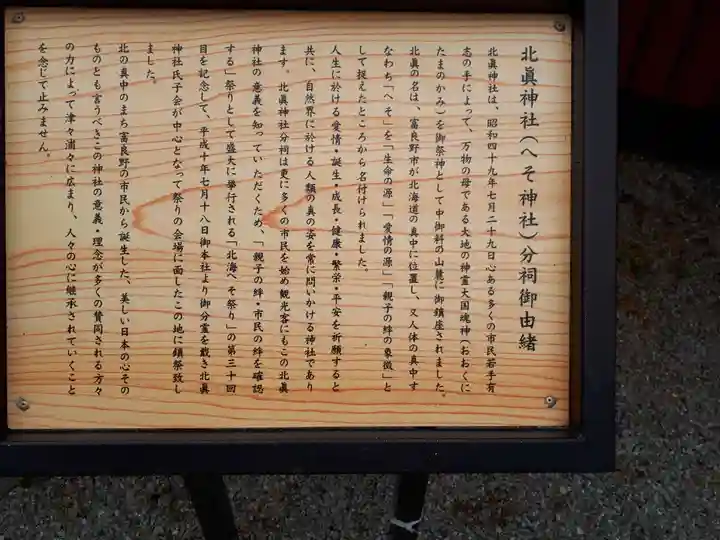 北眞神社(へそ神社)分祠御由緒
北眞神社は、昭和四十九年七月二十九日心ある多くの市民若手有
志の手によって、万物の母である大地の神霊大国魂神(おおくに
たまのかみ)を御祭神として中御料の山麓に御鎮座されました。
北眞の名は、富良野市が北海道の真中に位置し、又人体の真中す
なわち「へそ」を「生命の源」「愛情の源」「親子の絆の象徴」と
して捉えたところから名付けられました。
人生に於ける愛情・誕生・成長・健康・繁栄・平安を祈願すると
共に、自然界に於ける人類の真の姿を常に問いかける神社であり
ます。北眞神社分祠は更に多くの市民を始め観光客にもこの北眞
神社の意義を知っていただくため、「親子の絆・市民の絆を確認
する」祭りとして盛大に挙行される「北海へそ祭り」の第三十回
目を記念して、平成十年七月十八日御本社より御分霊を戴き北眞
神社氏子会が中心となって祭りの会場に面したこの地に鎮祭致し
ました。
北の真中のまち富良野の市民から誕生した、美しい日本の心その
ものとも言うべきこの神社の意義・理念が多くの賛同される方々
の力によって津々浦々に広まり、人々の心に継承されていくこと
を念じて止みません。